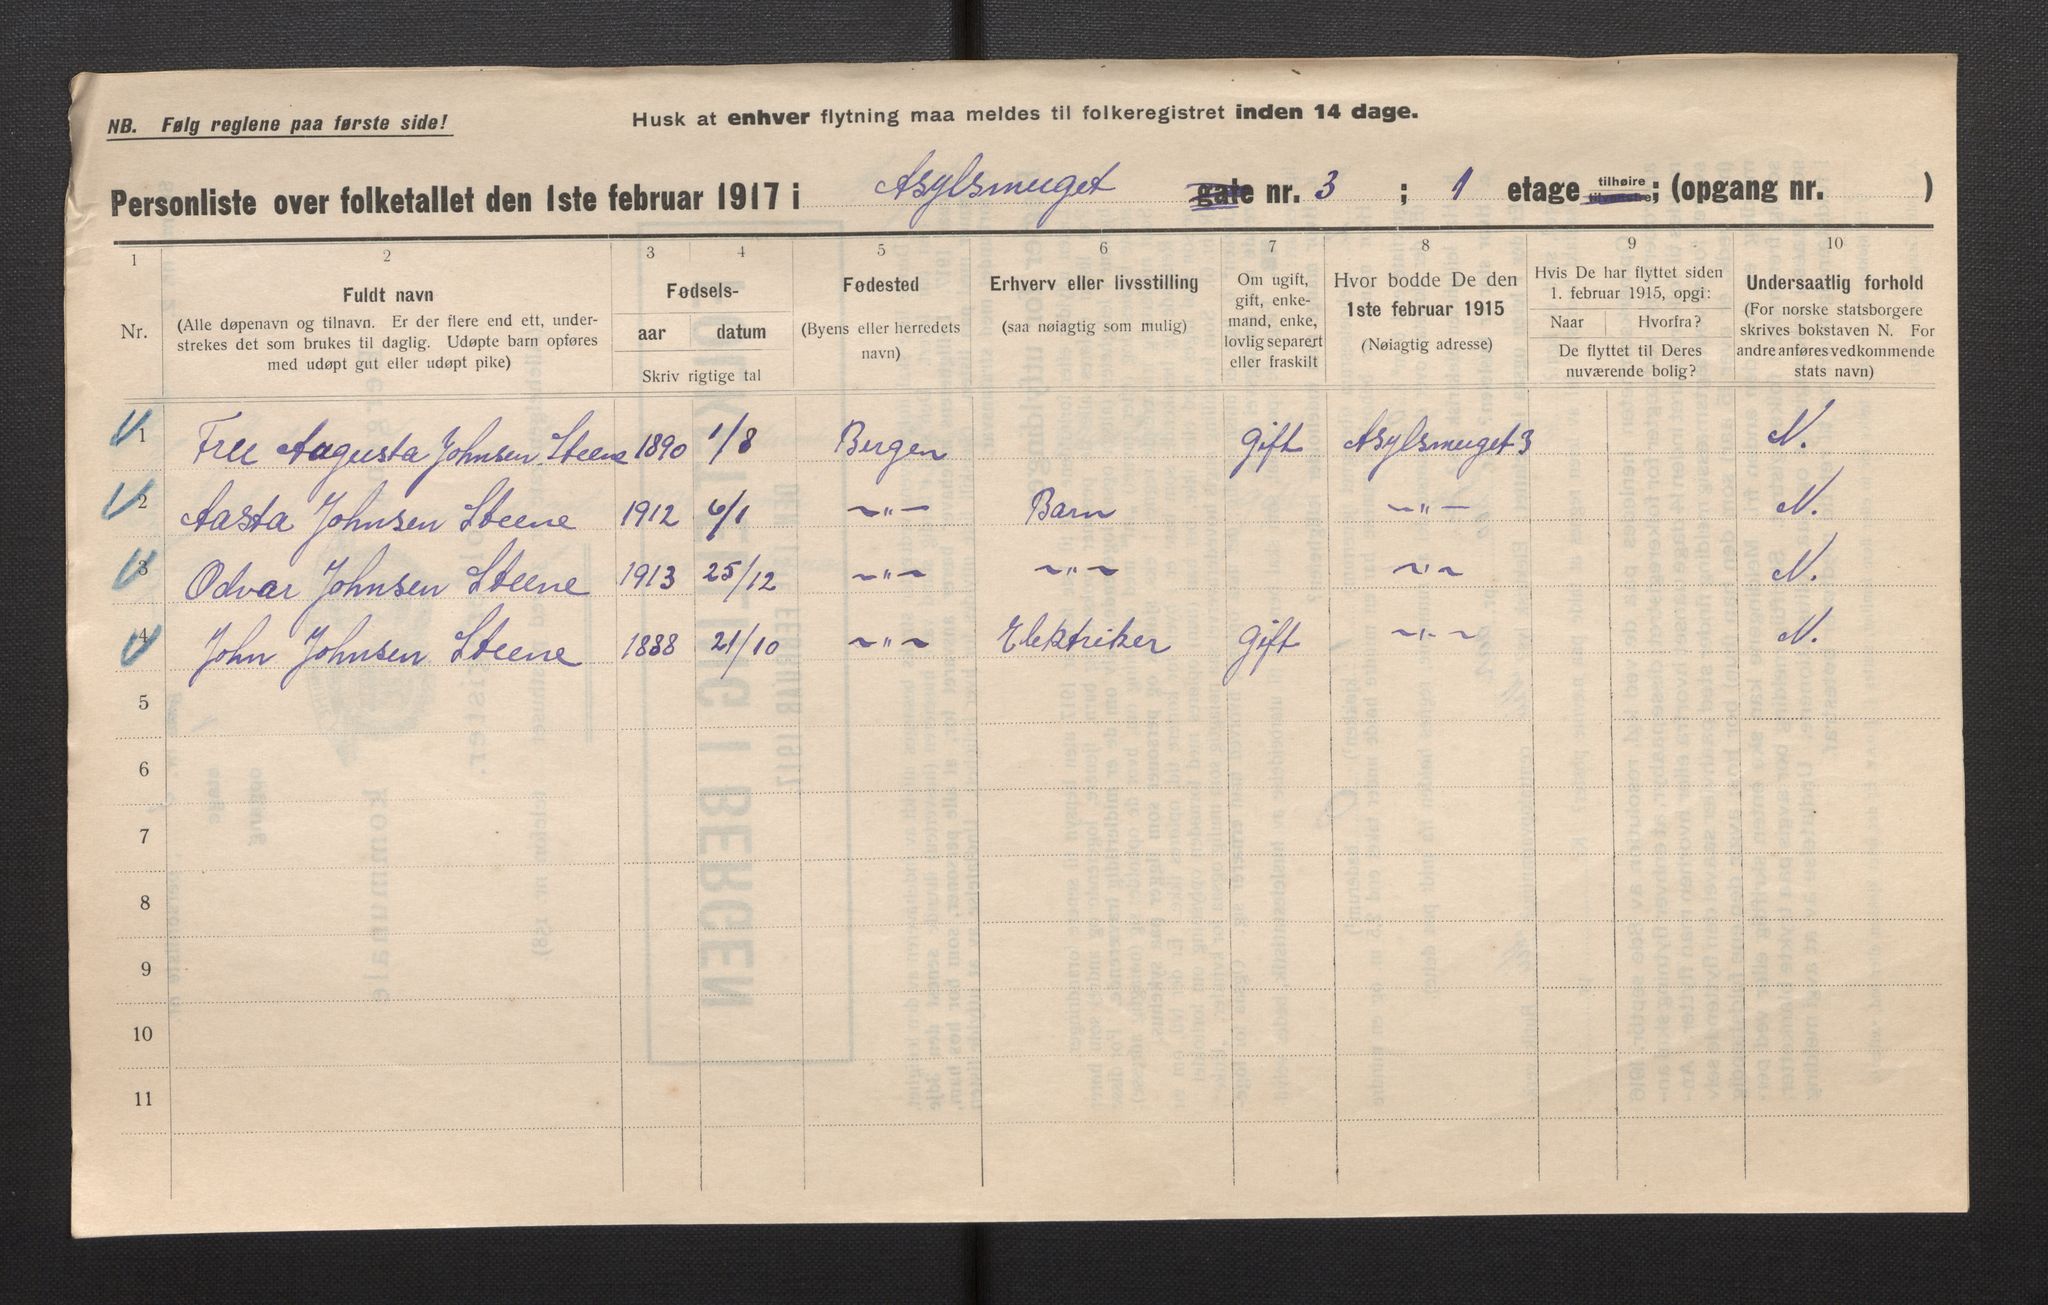 NB. Følg reglene paa første side!
Husk at enhver flytning maa meldes til folkeregistret inden 14 dage.
Personliste over folketallet den 1ste februar 1917 i Asylsmuget gate nr. 3 ; 1 etage tilhøire tilvenstre; (opgang nr. )
1 2 3 4 5 6 7 8 9 10
Nr.
Fuldt navn
(Alle døpenavn og tilnavn. Er der flere end ett, under-
strekes det som brukes til daglig. Udøpte barn opføres
med udøpt gut eller udøpt pike)
Fødsels-
aar datum
Skriv rigtige tal
Fødested
(Byens eller herredets
navn)
Erhverv eller livsstilling
(saa nøiagtig som mulig)
Om ugift,
gift, enke-
mand, enke,
lovlig separert
eller fraskilt
Hvor bodde De den
1ste februar 1915
(Nøiagtig adresse)
Hvis De har flyttet siden
1. februar 1915, opgi:
Naar Hvorfra?
De flyttet til Deres
nuværende bolig?
Undersaatlig forhold
(For norske statsborgere
skrives bokstaven N. For
andre anføres vedkommende
stats navn)
1 Fru Augusta Johnsen Steene 1890 1/8 Bergen Gift Asylsmuget 3 N.
2 Aasta Johnsen Steene 1912 6/1 -"- Barn -"- N.
3 Odvar Johnsen Steene 1913 25/12 -"- -"- -"- N.
4 John Johnsen Steene 1888 21/10 -"- Elektriker Gift -"- N.
5
6
7
8
9
10
11